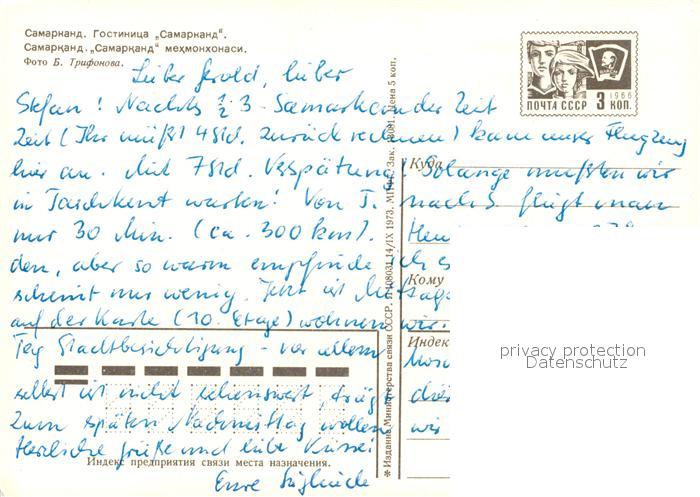 Самарканд. Гостиница „Самарканд“.
Самарқанд. „Самарқанд“ меҳмонхонаси.
Фото Б. Трифонова.
1966
ПОЧТА СССР 3 КОП.
Lieber Gerold, lieber
Stefan! Nachts ½ 3 Samarkander Zeit
Zeit (Ihr müßt 4 Std. zurück rechnen) kam unser Flugzeug
hier an. Mit 7 Std. Verspätung! Solange mußten wir
in Taschkent warten! Von T. nach S. fliegt man
nur 30 Min. (ca. 300 km).
den, aber so warm empfinde ich es
scheint nur wenig. Jetzt ist Mittags
auf der Karte (10. Etage) wohnen wir.
Tag Stadtbesichtigung - vor allem
selbst ist nicht sehenswert,
Zum späten Nachmittag wollen wir
Herzliche Grüße und liebe Küsse!
Eure
Куда
Кому
Индек
privacy protection
Datenschutz
Индекс предприятия связи места назначения.
✻ Издание Министерства связи СССР. 14/IX 1973. Зак. Цена 5 коп.